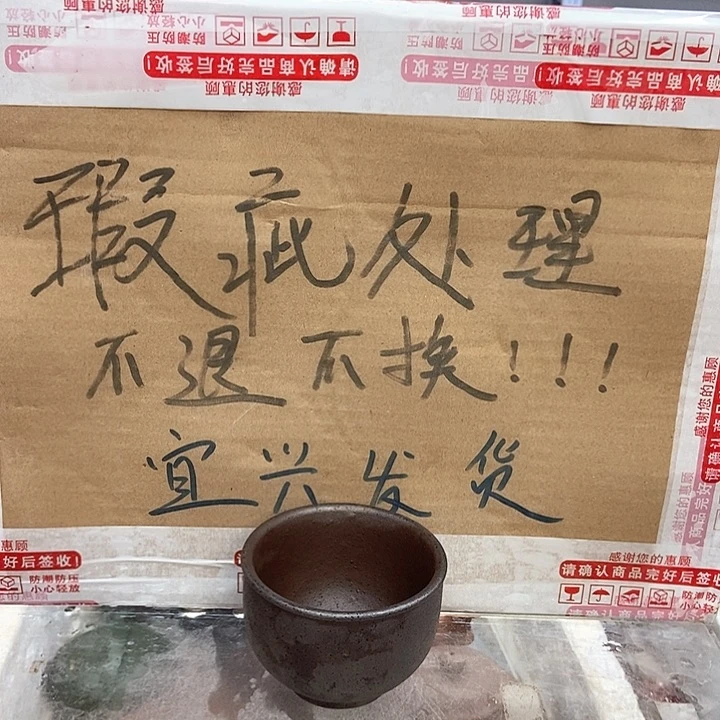 瑕疵处理
不退不换!!!
宜兴发货
感谢您的惠顾
请确认商品完好后签收!
防潮防压
小心轻放
感谢您的惠顾
请确认商品完好后签收!
感谢您的惠顾
惠顾
好后签收!
防潮防压
小心轻放
感谢您的惠顾
请确认商品完好后签收!
防潮防压
小心轻放
感谢您的惠顾
请确认商品